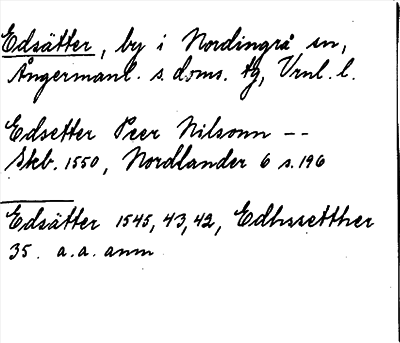 Edsätter, by i Nordingrå sn,
Ångermanl. s. doms. tg, Vrnl. l.
Edsetter Peer Nilsonn --
Skb. 1550, Nordlander 6 s. 196
Edsätter 1545, 43, 42, Edhssetther
35. a.a. anm